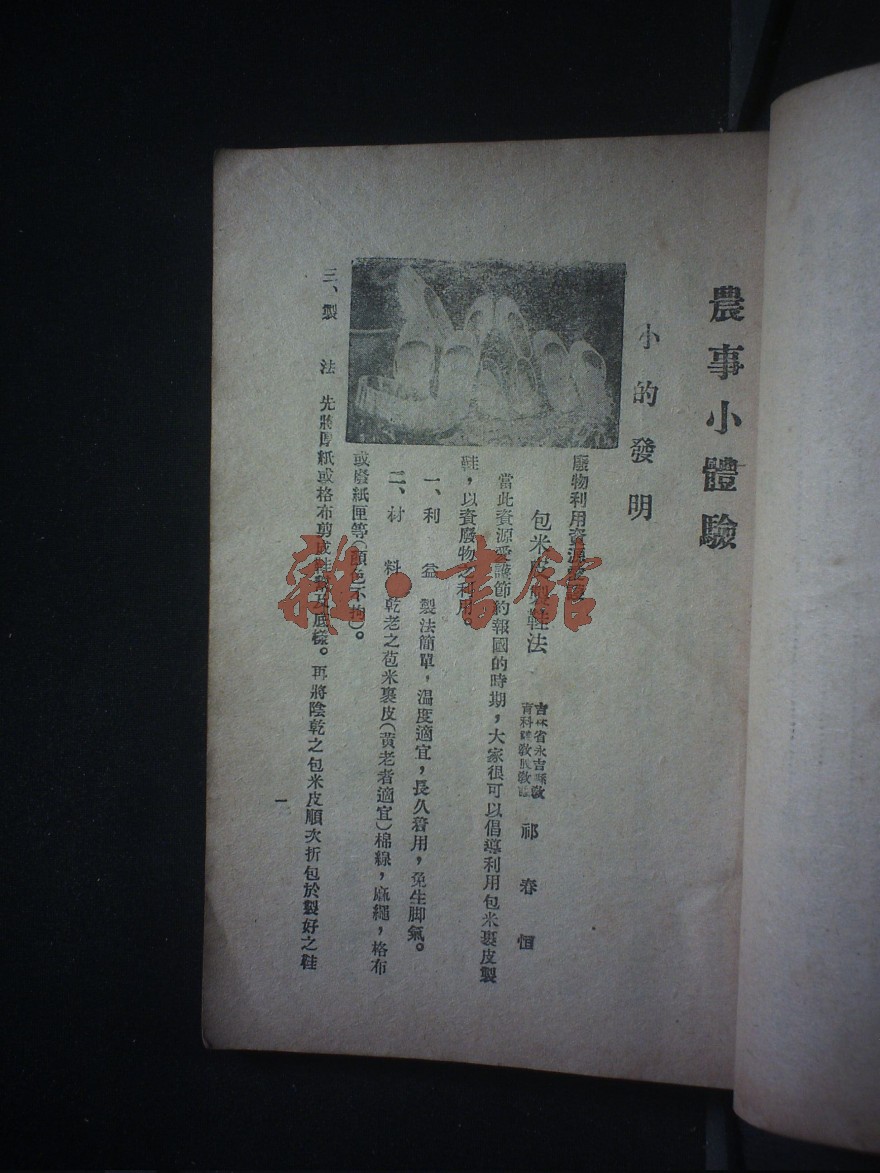 農事小體驗
小的發明
廢物利用資源愛護
包米皮製鞋法
吉林省永吉縣敎
育科
祁春恒
當此資源愛護節約報國的時期，大家很可以倡導利用包米裹皮製
鞋，以資廢物之利用。
一、利　益　製法簡單，溫度適宜，長久着用，免生脚氣。
二、材　料　乾老之苞米裹皮（黃老者適宜）棉線，麻繩，格布
或廢紙匣等（顏色不拘）。
三、製　法　先將厚紙或格布剪成鞋幫及底樣。再將陰乾之包米皮順次折包於製好之鞋
一
雜·書館